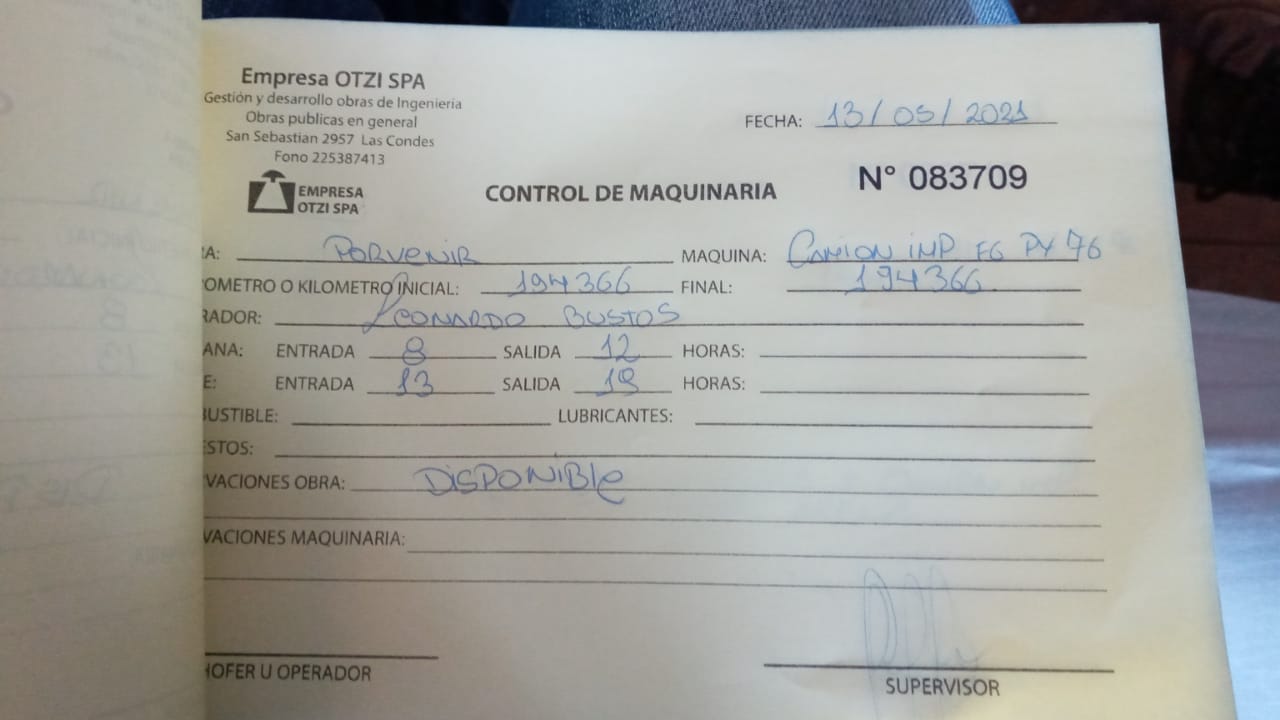 Empresa OTZI SPA
Gestión y desarrollo obras de Ingenieria
Obras publicas en general
San Sebastian 2957 Las Condes
Fono 225387413
EMPRESA
OTZI SPA
FECHA: 13/05/2021
CONTROL DE MAQUINARIA
N° 083709
RA: PORVENIR MAQUINA: CAMION IMP FG PY 76
OMETRO O KILOMETRO INICIAL: 194366 FINAL: 194366
RADOR: LEONARDO BUSTOS
ANA: ENTRADA 8 SALIDA 12 HORAS:
E: ENTRADA 13 SALIDA HORAS:
BUSTIBLE: LUBRICANTES:
ESTOS:
VACIONES OBRA: DISPONIBLE
VACIONES MAQUINARIA:
HOFER U OPERADOR
SUPERVISOR